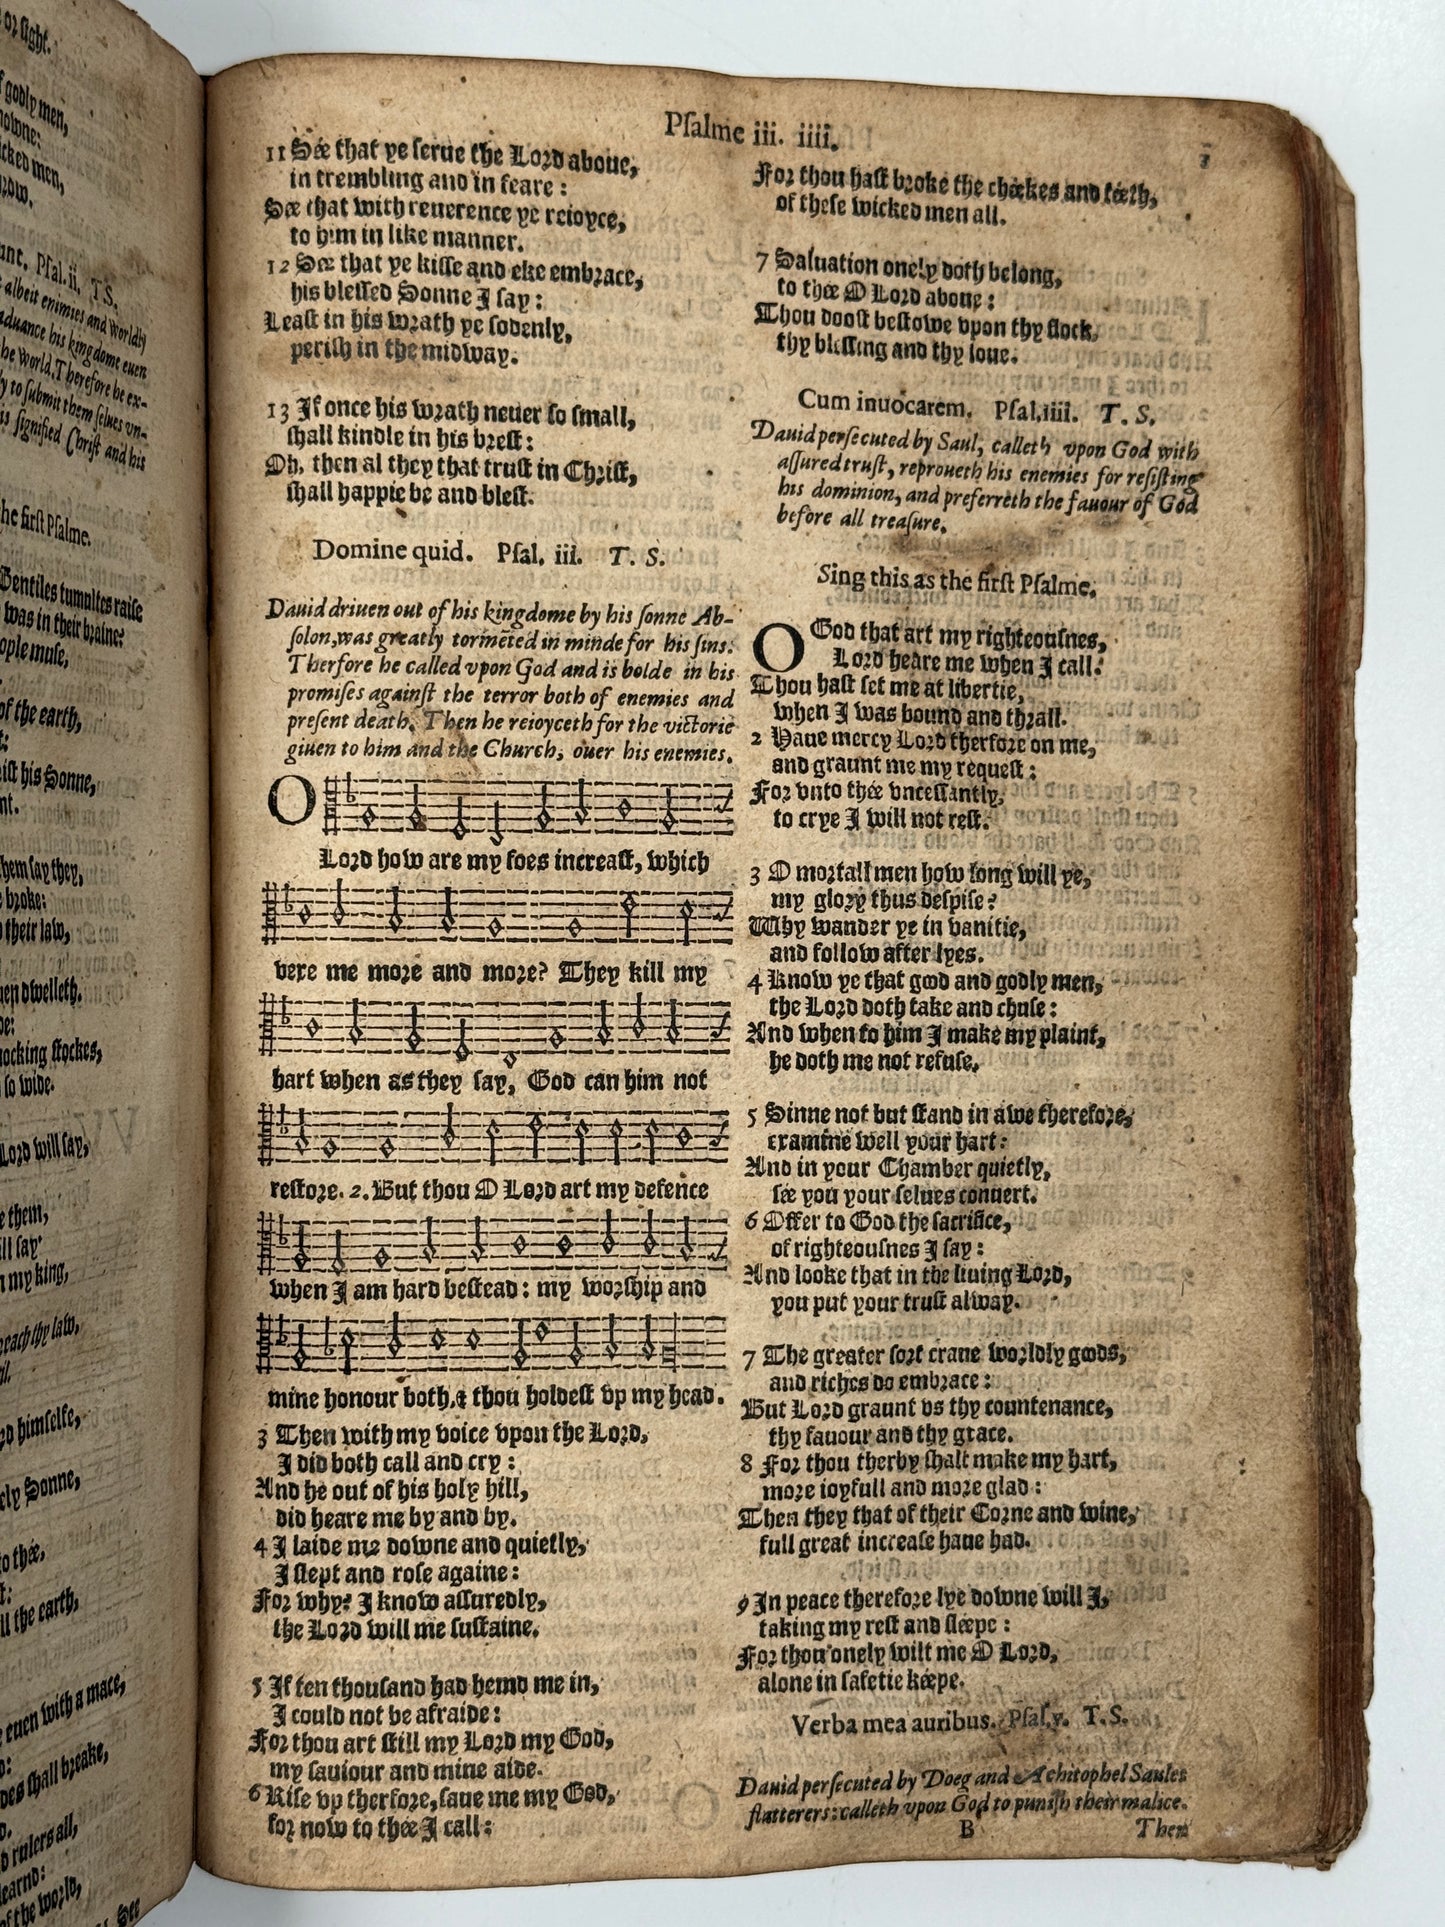 or sight.
godly men,
nowne:
icked men,
row.
Psal. ii. T S.
albeit enimies and worldly
aduance his kingdome euen
he world. Therefore he ex-
ly to submit them selues vn-
is signified Christ and his
he first Psalme.
Gentiles tumultes raise
was in their braine?
people muse,
of the earth,
his Sonne,
hem say they,
broke:
their law,
dwelleth.
mocking stockes,
so wide.
Lord will say,
them,
ill say
n my king,
reach thy law,
himselfe,
Sonne,
to thée,
ll the earth,
euen with a mace,
shall breake,
rulers all,
learnd:
of the world,
See
Psalme iii. iiii.
3
11 Sée that ye serue the Lord aboue,
in trembling and in feare:
Sée that with reuerence ye reioyce,
to him in like manner.
12 Sée that ye kisse and eke embrace,
his blessed Sonne I say:
Least in his wrath ye sodenly,
perish in the midway.
13 If once his wrath neuer so small,
shall kindle in his brest:
Oh, then al they that trust in Christ,
shall happie be and blest.
Domine quid. Psal. iii. T. S.
Dauid driuen out of his kingdome by his sonne Ab-
solon, was greatly tormēted in minde for his sins:
Therfore he called vpon God and is bolde in his
promises against the terror both of enemies and
present death. Then he reioyceth for the victorie
giuen to him and the Church, ouer his enemies.
O
Lord how are my foes increast, which
vexe me more and more? They kill my
hart when as they say, God can him not
restore. 2. But thou O Lord art my defence
when I am hard bestead: my worship and
mine honour both, & thou holdest vp my head.
3 Then with my voice vpon the Lord,
I did both call and cry:
And he out of his holy hill,
did heare me by and by.
4 I laide me downe and quietly,
I slept and rose againe:
For why? I know assuredly,
the Lord will me sustaine.
5 If ten thousand had hemd me in,
I could not be afraide:
For thou art still my Lord my God,
my sauiour and mine aide.
6 Rise vp therfore, saue me my God,
for now to thée I call:
For thou hast broke the chéekes and téeth,
of these wicked men all.
7 Saluation onely doth belong,
to thée O Lord aboue:
Thou doost bestowe vpon thy flock,
thy blessing and thy loue.
Cum inuocarem. Psal. iiii. T. S.
Dauid persecuted by Saul, calleth vpon God with
assured trust, reproueth his enemies for resisting
his dominion, and preferreth the fauour of God
before all treasure.
Sing this as the first Psalme.
O God that art my righteousnes,
Lord heare me when I call:
Thou hast set me at libertie,
when I was bound and thrall.
2 Haue mercy Lord therfore on me,
and graunt me my request:
For vnto thée vncessantly,
to crye I will not rest.
3 O mortall men how long will ye,
my glory thus despise?
Why wander ye in vanitie,
and follow after lyes.
4 Know ye that good and godly men,
the Lord doth take and chuse:
And when to him I make my plaint,
he doth me not refuse.
5 Sinne not but stand in awe therefore,
examine well your hart:
And in your Chamber quietly,
sée you your selues conuert.
6 Offer to God the sacrifice,
of righteousnes I say:
And looke that in the liuing Lord,
you put your trust alway.
7 The greater sort craue worldly goods,
and riches do embrace:
But Lord graunt vs thy countenance,
thy fauour and thy grace.
8 For thou therby shalt make my hart,
more ioyfull and more glad:
Then they that of their Corne and wine,
full great increase haue had.
9 In peace therefore lye downe will I,
taking my rest and sléepe:
For thou onely wilt me O Lord,
alone in safetie kéepe.
Verba mea auribus. Psal. v. T. S.
Dauid persecuted by Doeg and Achitophel Saules
flatterers: calleth vpon God to punish their malice.
B
Then